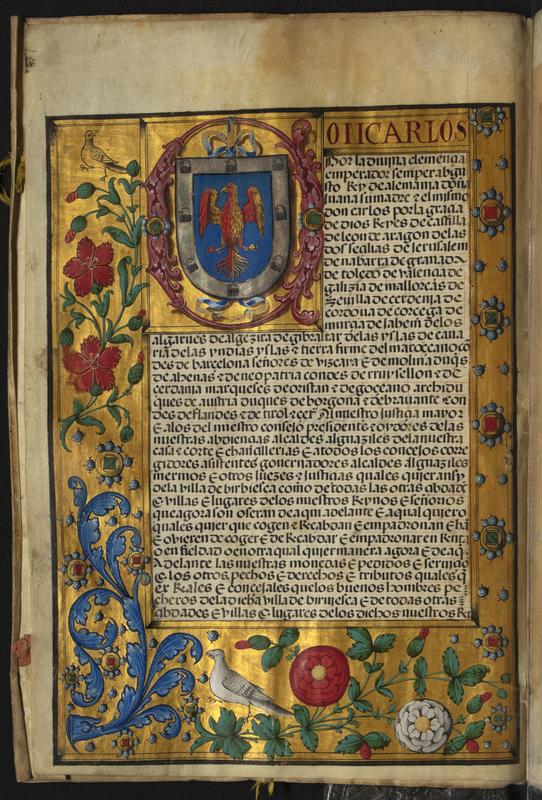 DON CARLOS
Por la diuina clemençia
emperador semper abgu
sto Rey de alemania doña
iuana su madre & el mismo
don carlos por la graçia
de dios Reyes de castilla
de leon de aragon de las
dos seçilias de Jerusalem
de nabarra de granada
de toledo de valençia de
galizia de mallorcas de
seuilla de cerdenia de
cordoua de corcega de
murçia de Jahem de los
algarues de algezira de gibraltar de las yslas de cana
ria de las yndias yslas & tierra firme del mar oçeano co
des de barcelona señores de vizcaya & de molina duqs
de athenas & de neopatria condes de rruysellon & de
cerdania marqueses de oristan & de goçeano archidu
ques de austria duques de borgoña & de brauante con
des de flandes & de tirol & cet Al nuestro Justiçia mayor
E a los del nuestro consejo presidente & oydores de las
nuestras abdiençias alcaldes alguaziles de la nuestra
casa & corte & chançillerias E a todos los conçejos corre
gidores asistentes gouernadores alcaldes alguaziles
merinos E otros Juezes & Justiçias quales quier ansy
de la villa de birbiesca como de todas las otras çibdades
E villas E lugares de los nuestros Reynos E señorios
que agora son o seran de aqui adelante E a qual quier o
quales quier que cogen & Recabdan E empadronan E han
E obieren de coger E de Recabdar E empadronar en Renta
o en fieldad o en otra qual quier manera agora E de aq
Adelante las nuestras monedas E pedidos E seruiçio
E los otros pechos E derechos E tributos quales q
er Reales E conçejales que los buenos hombres pe
cheros de la dicha villa de biruiesca E de todas otras
çibdades E villas E lugares de los dichos nuestros Re